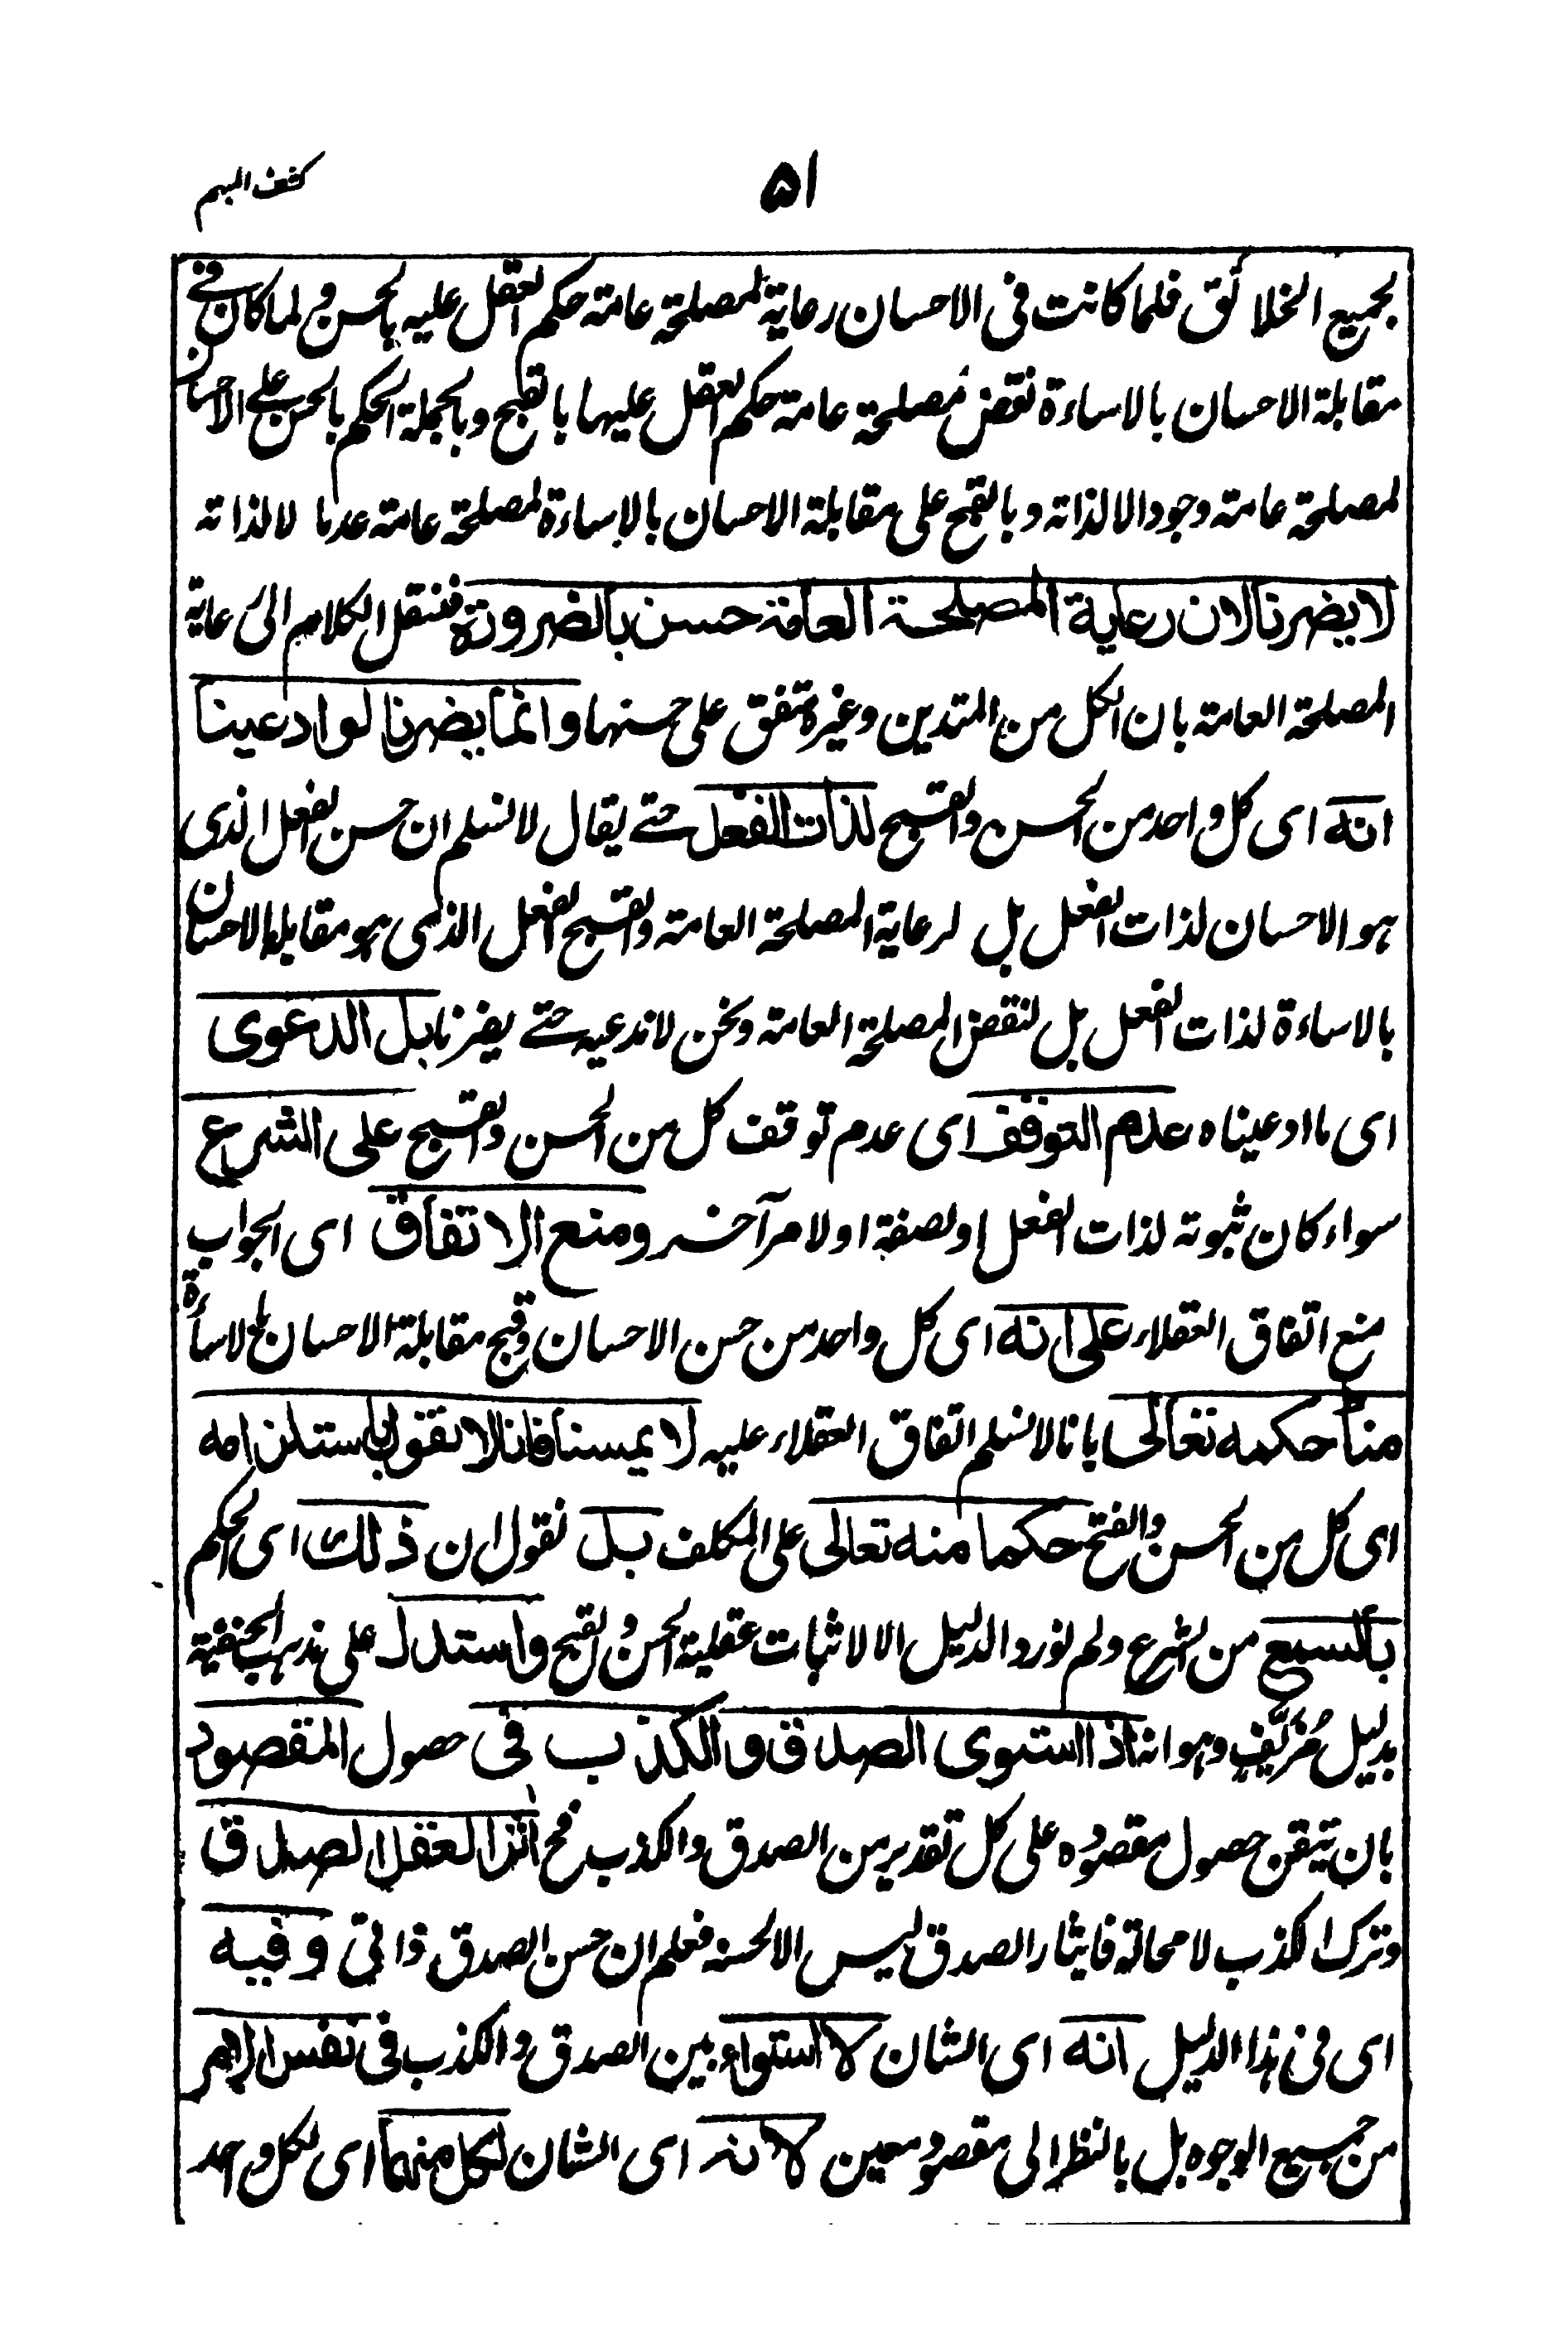 ۵۱
كشف المبهم
لجميع الخلائق فلما كانت فى الاحسان رعاية لمصلحة عامة حكم العقل عليه بالحسن ولما كان فے
مقابلة الاحسان بالاساءة نقض مصلحة عامة حكم العقل عليها بالقبح وبالجملة الحكم بالحسن علے الاحسان
لمصلحة عامة وجودا لا لذاته وبالقبح على مقابلة الاحسان بالاساءة لمصلحة عامة عدما لا لذاته
لا يضرنا لان رعاية المصلحة العامة حسن بالضرورة فننقل الكلام الى رعاية
المصلحة العامة بان الكل من المتدين وغيره متفق على حسنها وانما يضرنا لو ادعينا
انه اى كل واحد من الحسن والقبح لذات الفعل حتے يقال لا نسلم ان حسن الفعل الذى
هو الاحسان لذات الفعل بل لرعاية المصلحة العامة والقبح الفعل الذى هو مقابلة الاحسان
بالاساءة لذات الفعل بل لنقض المصلحة العامة ونحن لا ندعيه حتے يضرنا بل الدعوى
اى ما ادعيناه عدم التوقف اى عدم توقف كل من الحسن والقبح على الشرع
سواء كان ثبوته لذات الفعل او لصفة او لامر آخر ومنع الاتفاق اى الجواب
منع اتفاق العقلاء على انه اى كل واحد من حسن الاحسان وقبح مقابلة الاحسان بالاساءة
مناط حكمه تعالى بانا لا نسلم اتفاق العقلاء عليه لا يمسنا فانا لا نقول باستلزامه
اى كل من الحسن والقبح حكما منه تعالى على المكلف بل نقول ان ذلك اى الحكم
بالسمع من الشرع ولم نورد الدليل الا لاثبات عقلية الحسن والقبح واستدل على مذهب الحنفية
بدليل مُزَيَّفٍ وهو انه اذا استوى الصدق والكذب فى حصول المقصود
بان تيقن حصول مقصوده على كل تقدير من الصدق والكذب فح آثر العقل الصدق
وترك الكذب لا محالة فايثار الصدق ليس الا لحسنه فعلم ان حسن الصدق ذاتى وفيه
اى فى هذا الدليل انه اى الشان لا استواء بين الصدق والكذب فى نفس الامر
من جميع الوجوه بل بالنظر الى مقصود معين لانه اى الشان لكل منهما اى لكل واحد